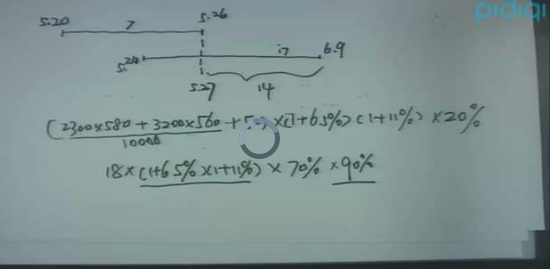 pidiqi
5.20 7 5.26
5.24 17 6.9
5.27 14
(2300×580+3200×560+50)×(1+65%)(1+11%)×20%
10000
18×(1+65%×1+11%)×70%×90%